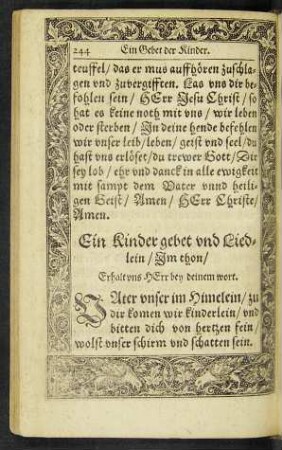 244 Ein Gebet der Kinder.
teuffel/ das er mus auffhören zuschla-
gen vnd zuvergifften. Las vns dir be-
fohlen sein/ HErr Jesu Christ/ so
hat es keine noth mit vns/ wir leben
oder sterben/ In deine hende befehlen
wir vnser leib/ leben/ geist vnd seel/ du
hast vns erlöset/ du trewer Gott/ Dir
sey lob/ ehr vnd danck in alle ewigkeit
mit sampt dem Vater vnnd heili-
gen Geist/ Amen/ HErr Christe/
Amen.
Ein Kinder gebet vnd Lied-
lein/ Im thon/
Erhalt vns HErr bey deinem wort.
VAter vnser im Himelein/ zu
dir komen wir kinderlein/ vnd
bitten dich von hertzen fein/
wolst vnser schirm vnd schatten sein.